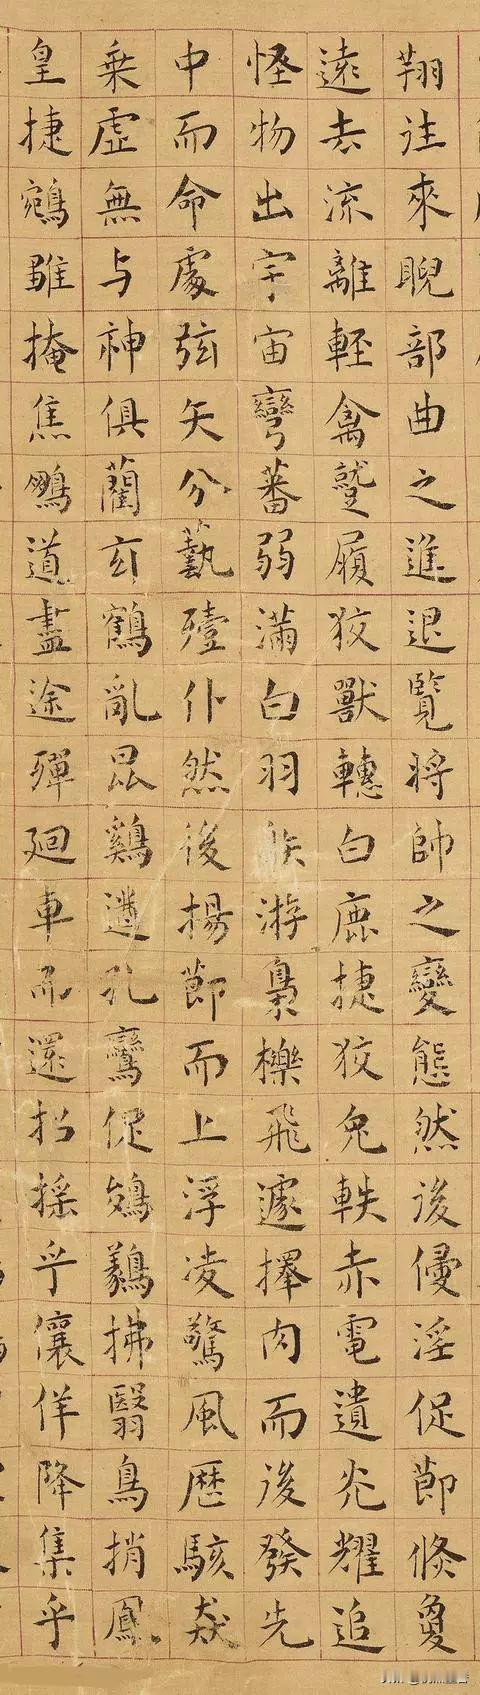 翔往來睨部曲之進退覽將帥之變態然後侵淫促節倏敻
遠去流離輕禽蹵履狡獸轊白鹿捷狡兔軼赤電遺光耀追
怪物出宇宙彎蕃弱滿白羽射游梟櫟飛遽擇肉而後發先
中而命處弦矢分藝殪仆然後揚節而上浮凌驚風歷駭猋
乗虛無与神俱藺玄鶴亂昆鷄遒孔鸞促鵕鸃拂翳鳥捎鳳
皇捷鵷雛掩焦鵬道盡途殫迴車而還招搖乎儴佯降集乎